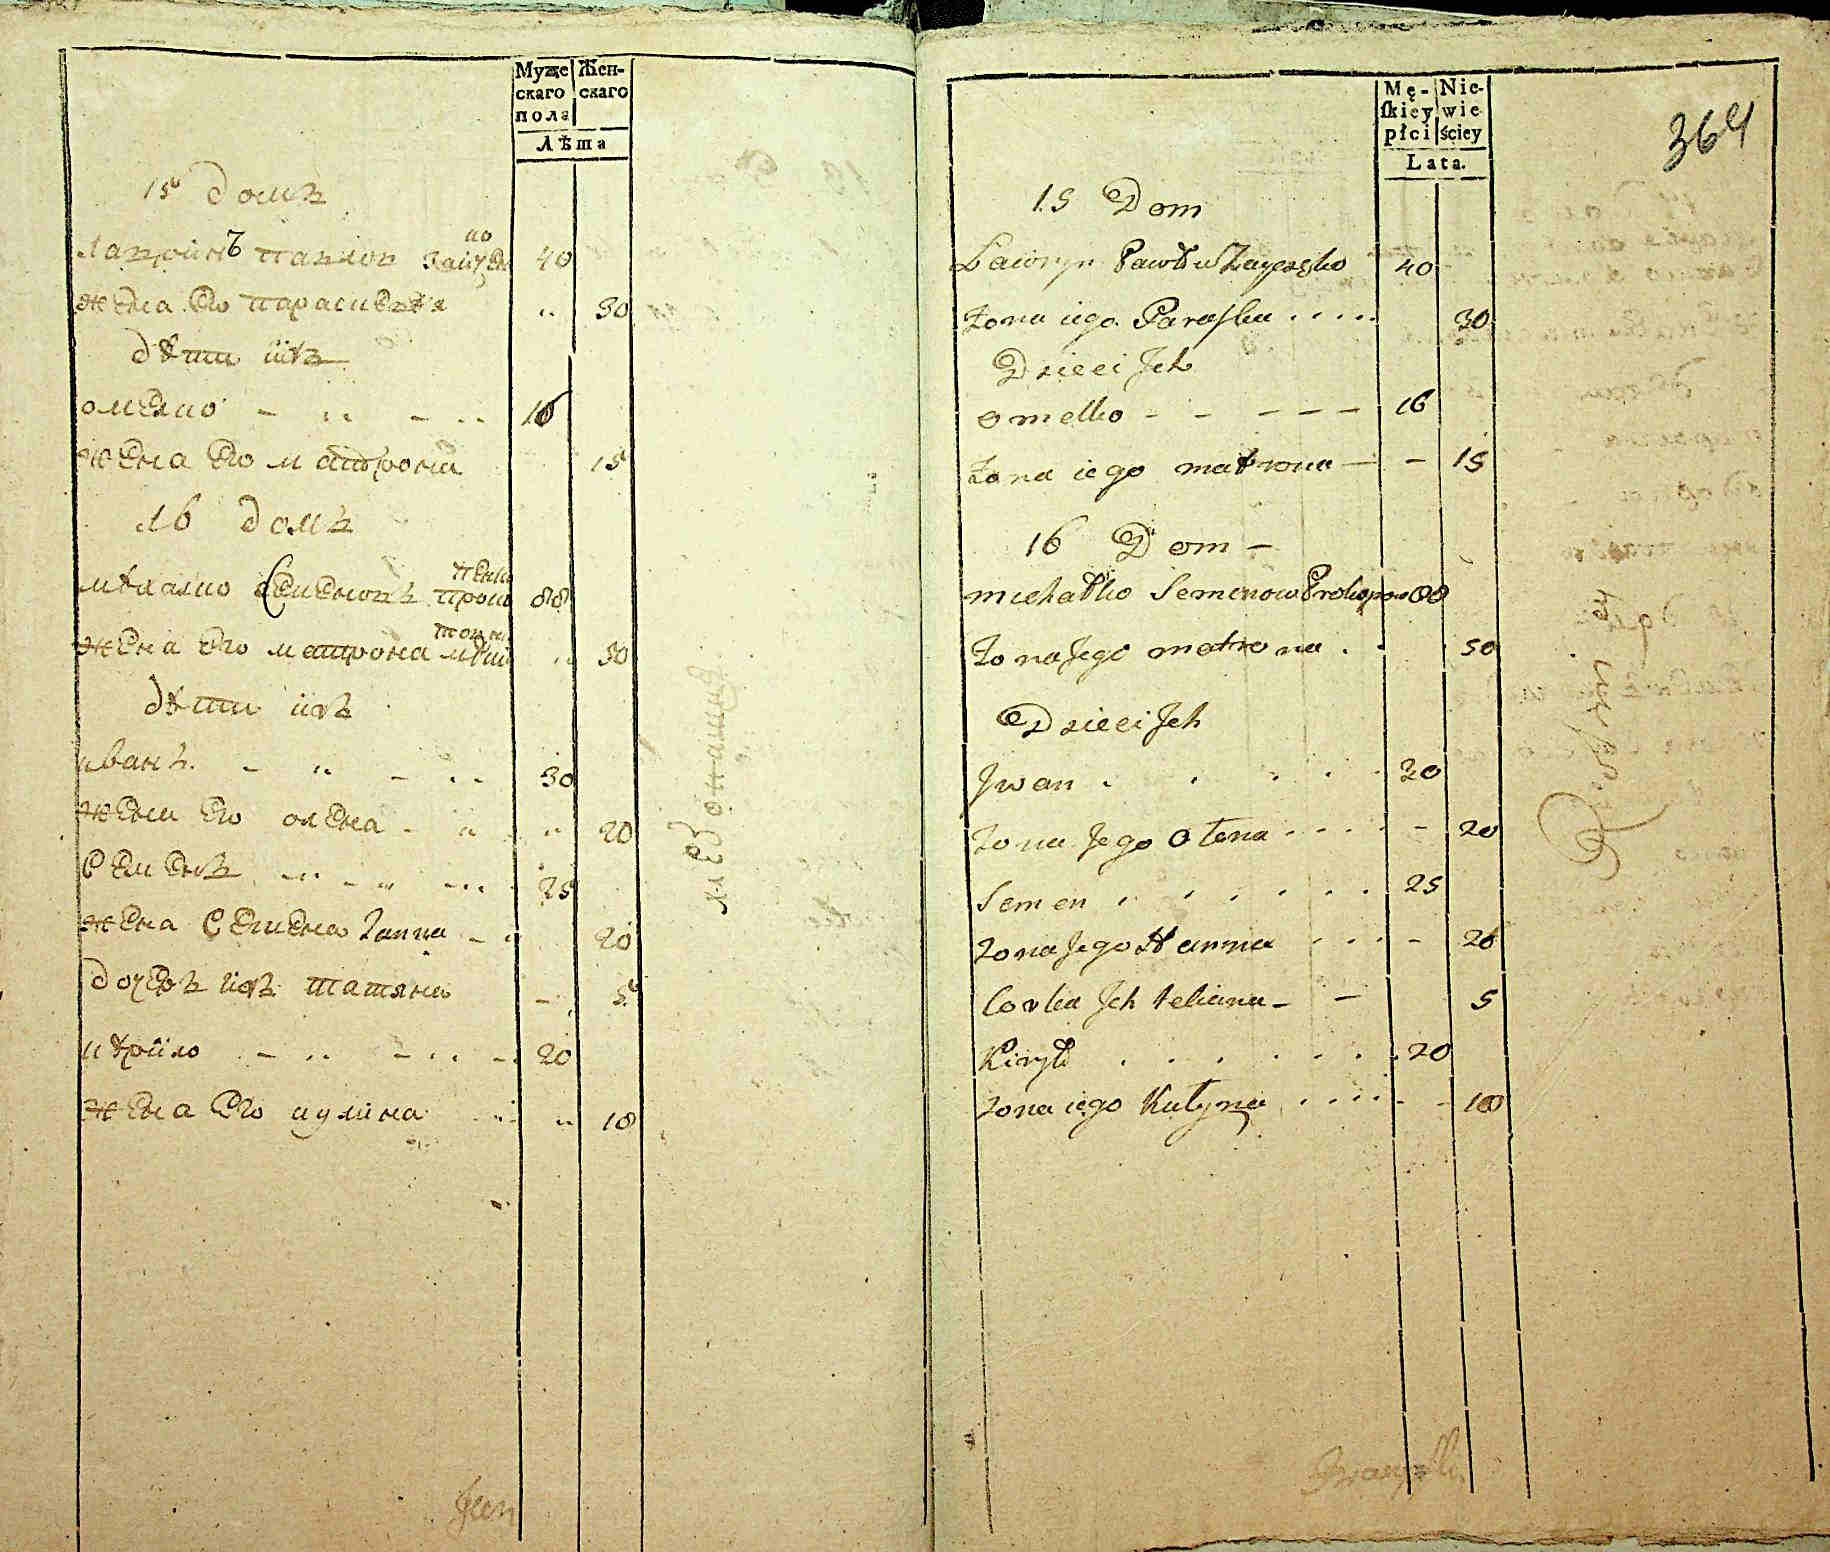 Муже
скаго
пола
Жен-
скаго
Лѣта
15 домъ
Лавринъ павлов Зайченко 40
жена его параскевъя 30
дѣти ихъ
омелко 16
жена его матрона 15
16 домъ
михалко Семеновъ 88
жена его матрона 50
дѣти ихъ
иванъ 30
жена его олена 20
Семенъ 25
жена Семена Ганна 20
дочеръ ихъ татяна 5
кирило 20
жена его акулина 18
Mę-
ſkiey
płci
Nie-
wie
ściey
Lata.
364
15 Dom
Lawryn Pawłow Zayczęko 40
Zona iego Paraſka 30
Dzieci Jch
omelko 16
Zona iego matrona 15
16 Dom
michałko Semenow 88
Zona Jego matrona 50
Dzieci Jch
Jwan 30
Zona Jego Olena 20
Semen 25
Zona Jego Hanna 20
Corka Jch tetiana 5
Kirył 20
Zona iego 18